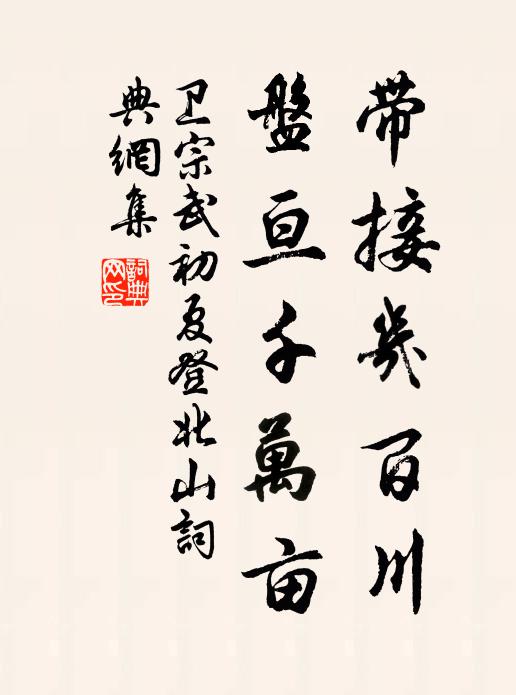 带接幾百川
盤亘千萬亩
卫宗武初夏登北山詞
典網集
詞典
网印